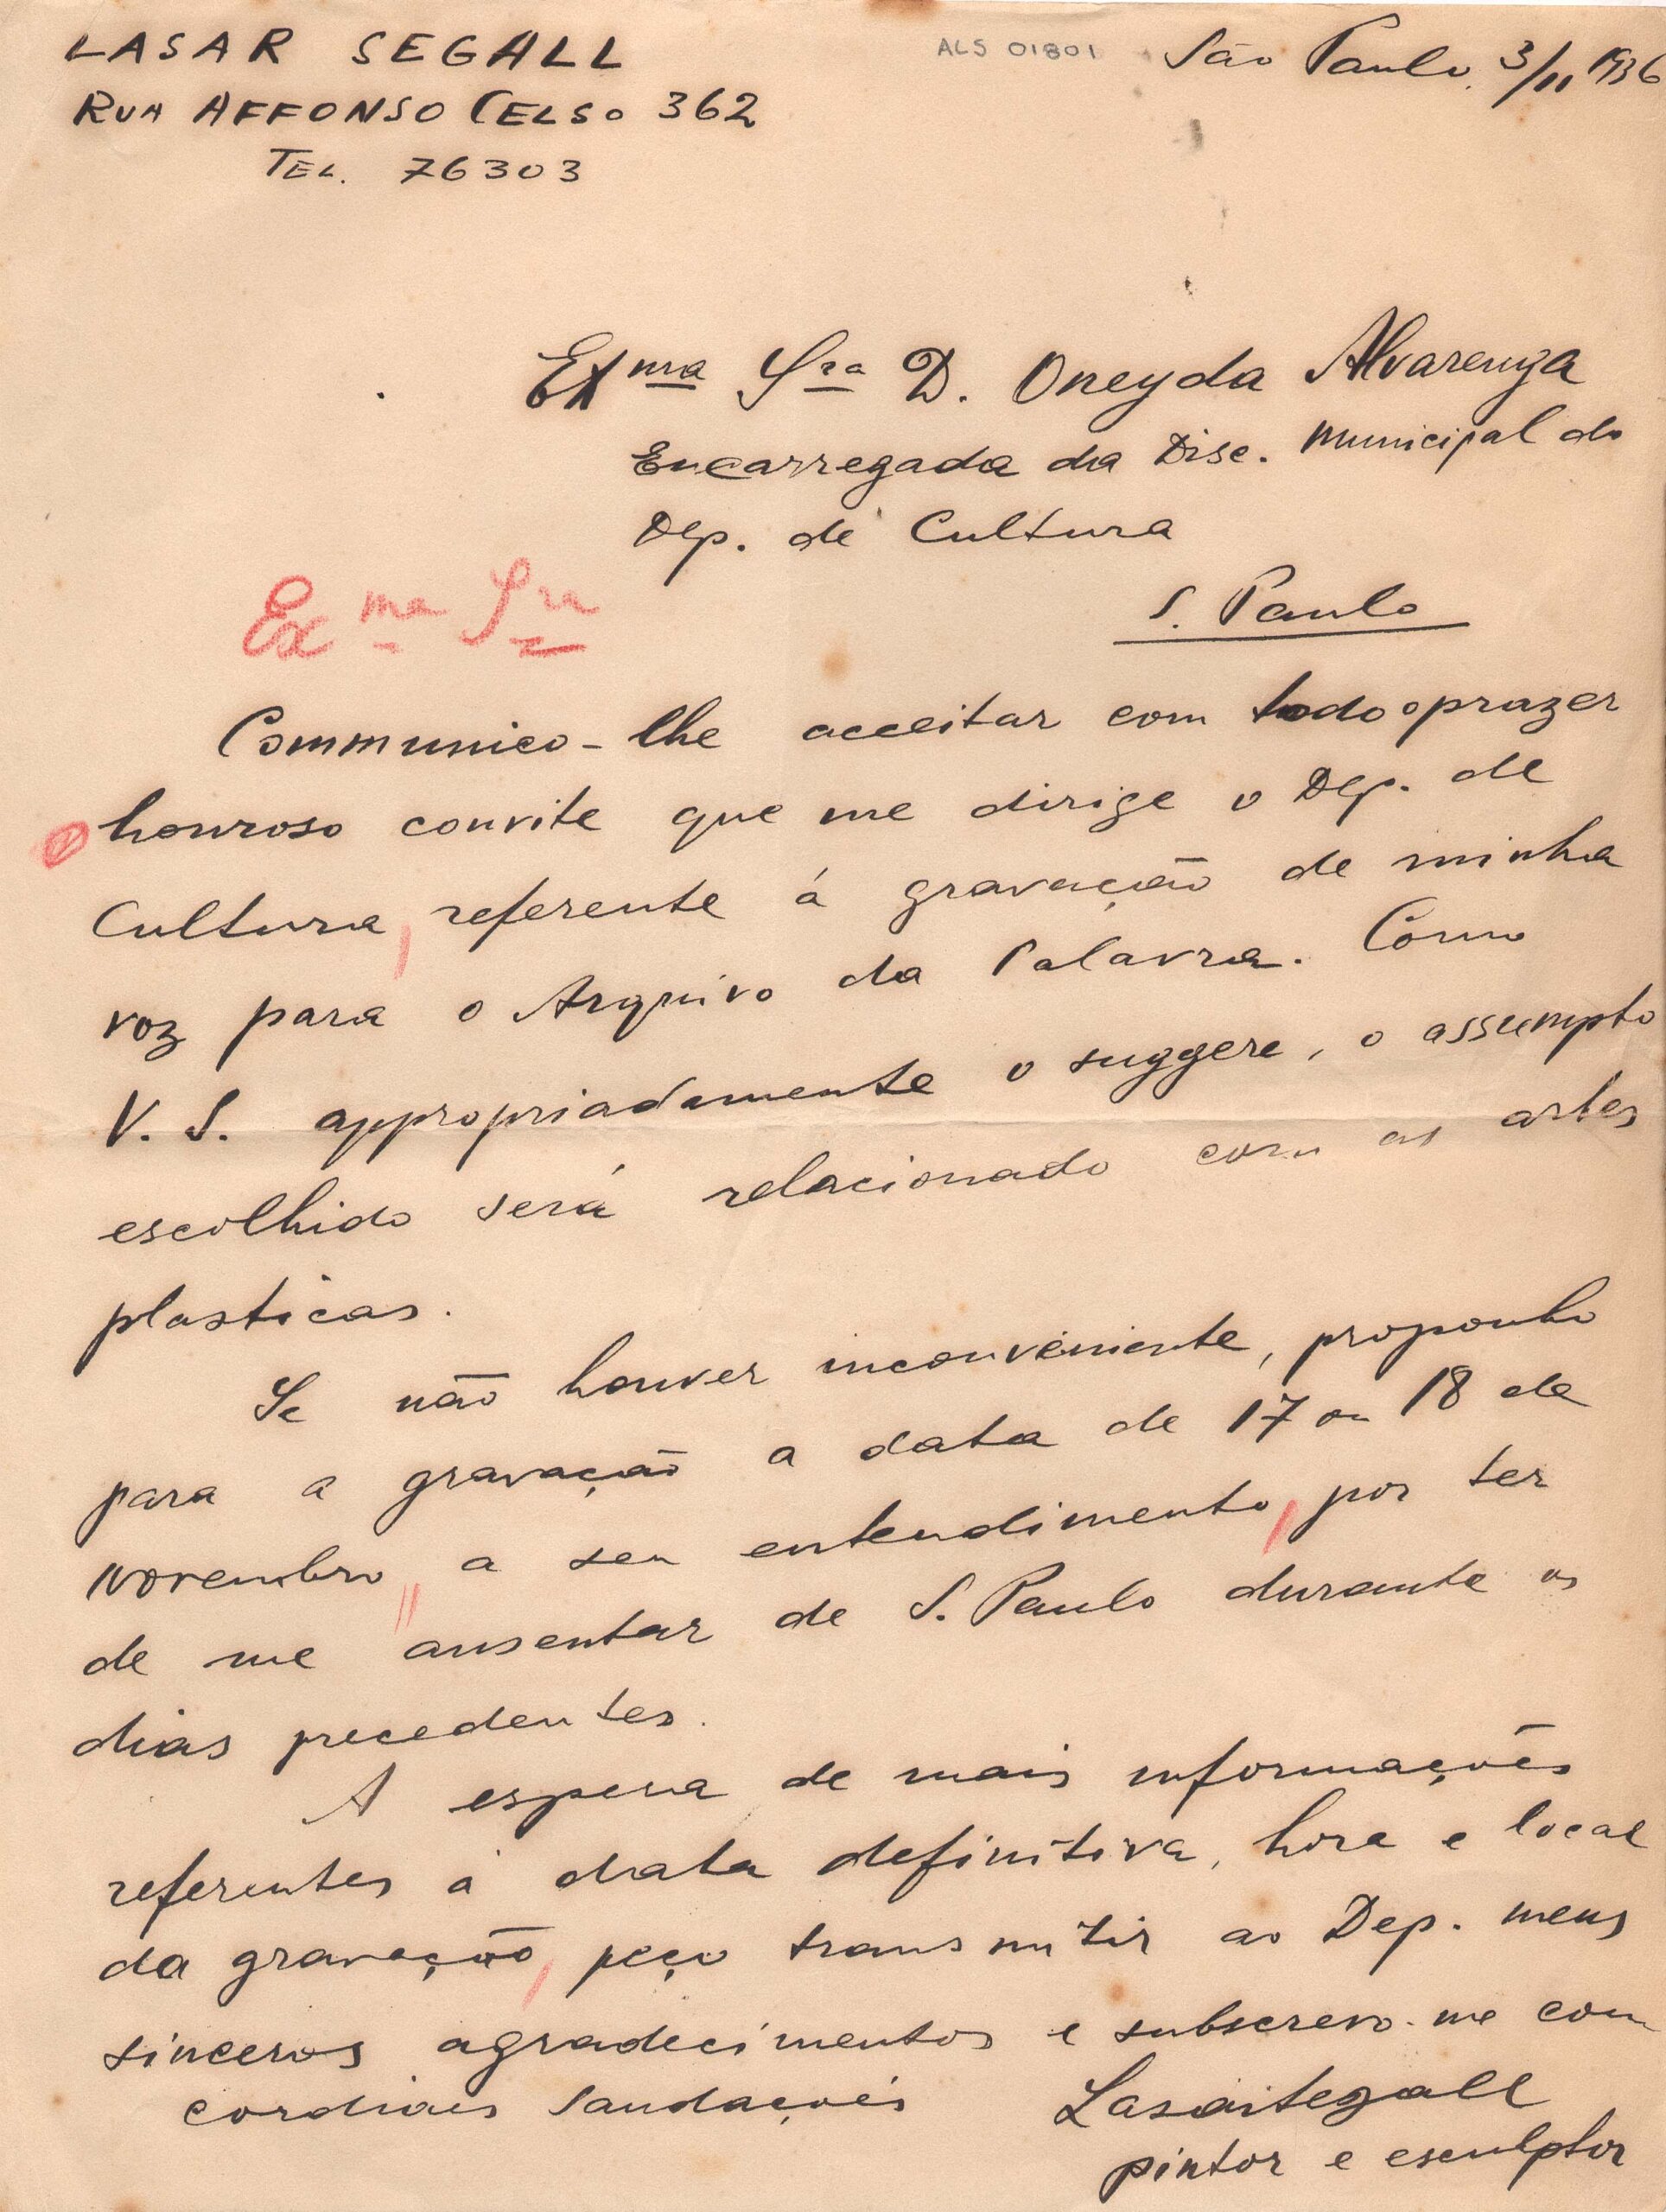 LASAR SEGALL
RUA AFFONSO CELSO 362
TEL. 76303
ALS 01801
São Paulo. 3/11 1936
Exma Sra D. Oneyda Alvarenga
Encarregada da Disc. Municipal do
Dep. de Cultura
S. Paulo
Exma Sra
Communico-lhe acceitar com todo o prazer
o honroso convite que me dirige o Dep. de
Cultura, referente á gravação de minha
voz para o Arquivo da Palavra. Como
V. S. appropriadamente o suggere, o assumpto
escolhido será relacionado com as artes
plasticas.
Se não houver inconveniente, proponho
para a gravação a data de 17 ou 18 de
novembro, a seu entendimento, por ter
de me ausentar de S. Paulo durante os
dias precedentes.
A espera de mais informações
referentes á data definitiva, hora e local
da gravação, peço transmitir ao Dep. meus
sinceros agradecimentos e subscrevo-me com
cordiaes saudações
Lasar Segall
pintor e esculptor